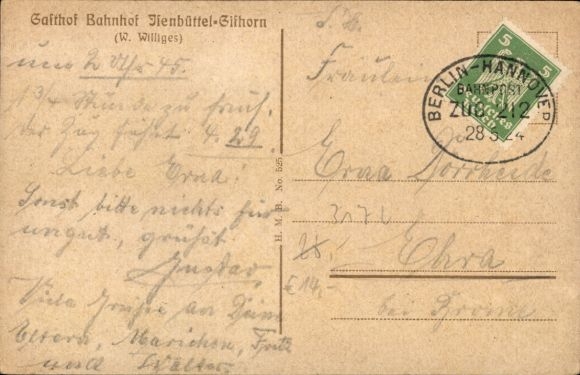 Gasthof Bahnhof Isenbüttel-Gifhorn
(W. Williges)
um 2 Uhr 45.
3/4 Stunde zu früh,
der Zug fährt 4.29.
Liebe Erna!
Sonst bitte nichts für
ungut, grüßt
Gustav
Viele Grüße an Deine
Eltern, Mariechen, Fritz
und Walter
H. M. B. No. 525
Fräulein
Erna Dorrheide
3172
Ehra
€ 14,-
bei Brome
5
5
BERLIN-HANNOVER
BAHNPOST
ZUG 212
28